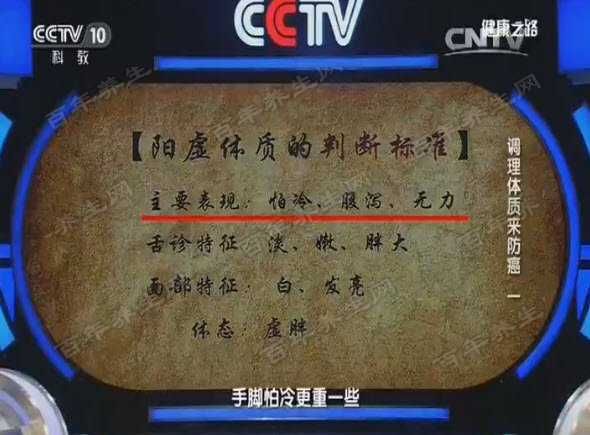 CCTV
CCTV 10
科教
健康之路
CNTV
【阳虚体质的判断标准】
主要表现：怕冷、腹泻、无力
舌诊特征 淡、嫩、胖大
面部特征：白、发亮
体态：虚胖
调理体质来防癌 一
手脚怕冷更重一些
百年养生网
百年养生网
百年养生网
百年养生网
百年养生网
百年养生网